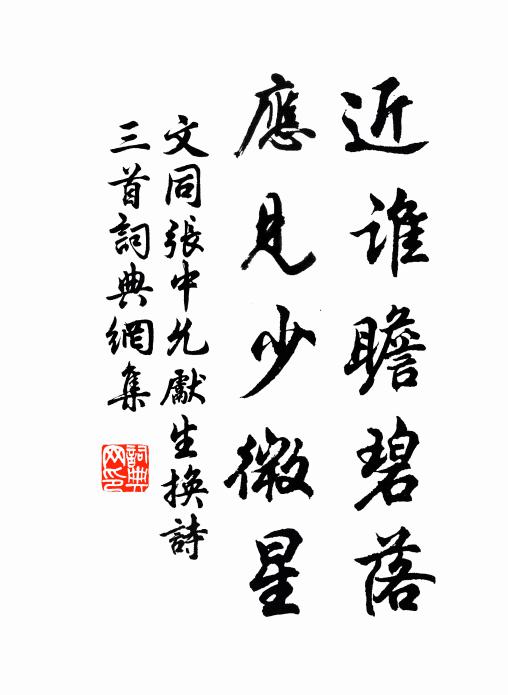 近谁瞻碧落
應見少微星
文同張中允獻生換詩
三首詞典網集
詞典网印